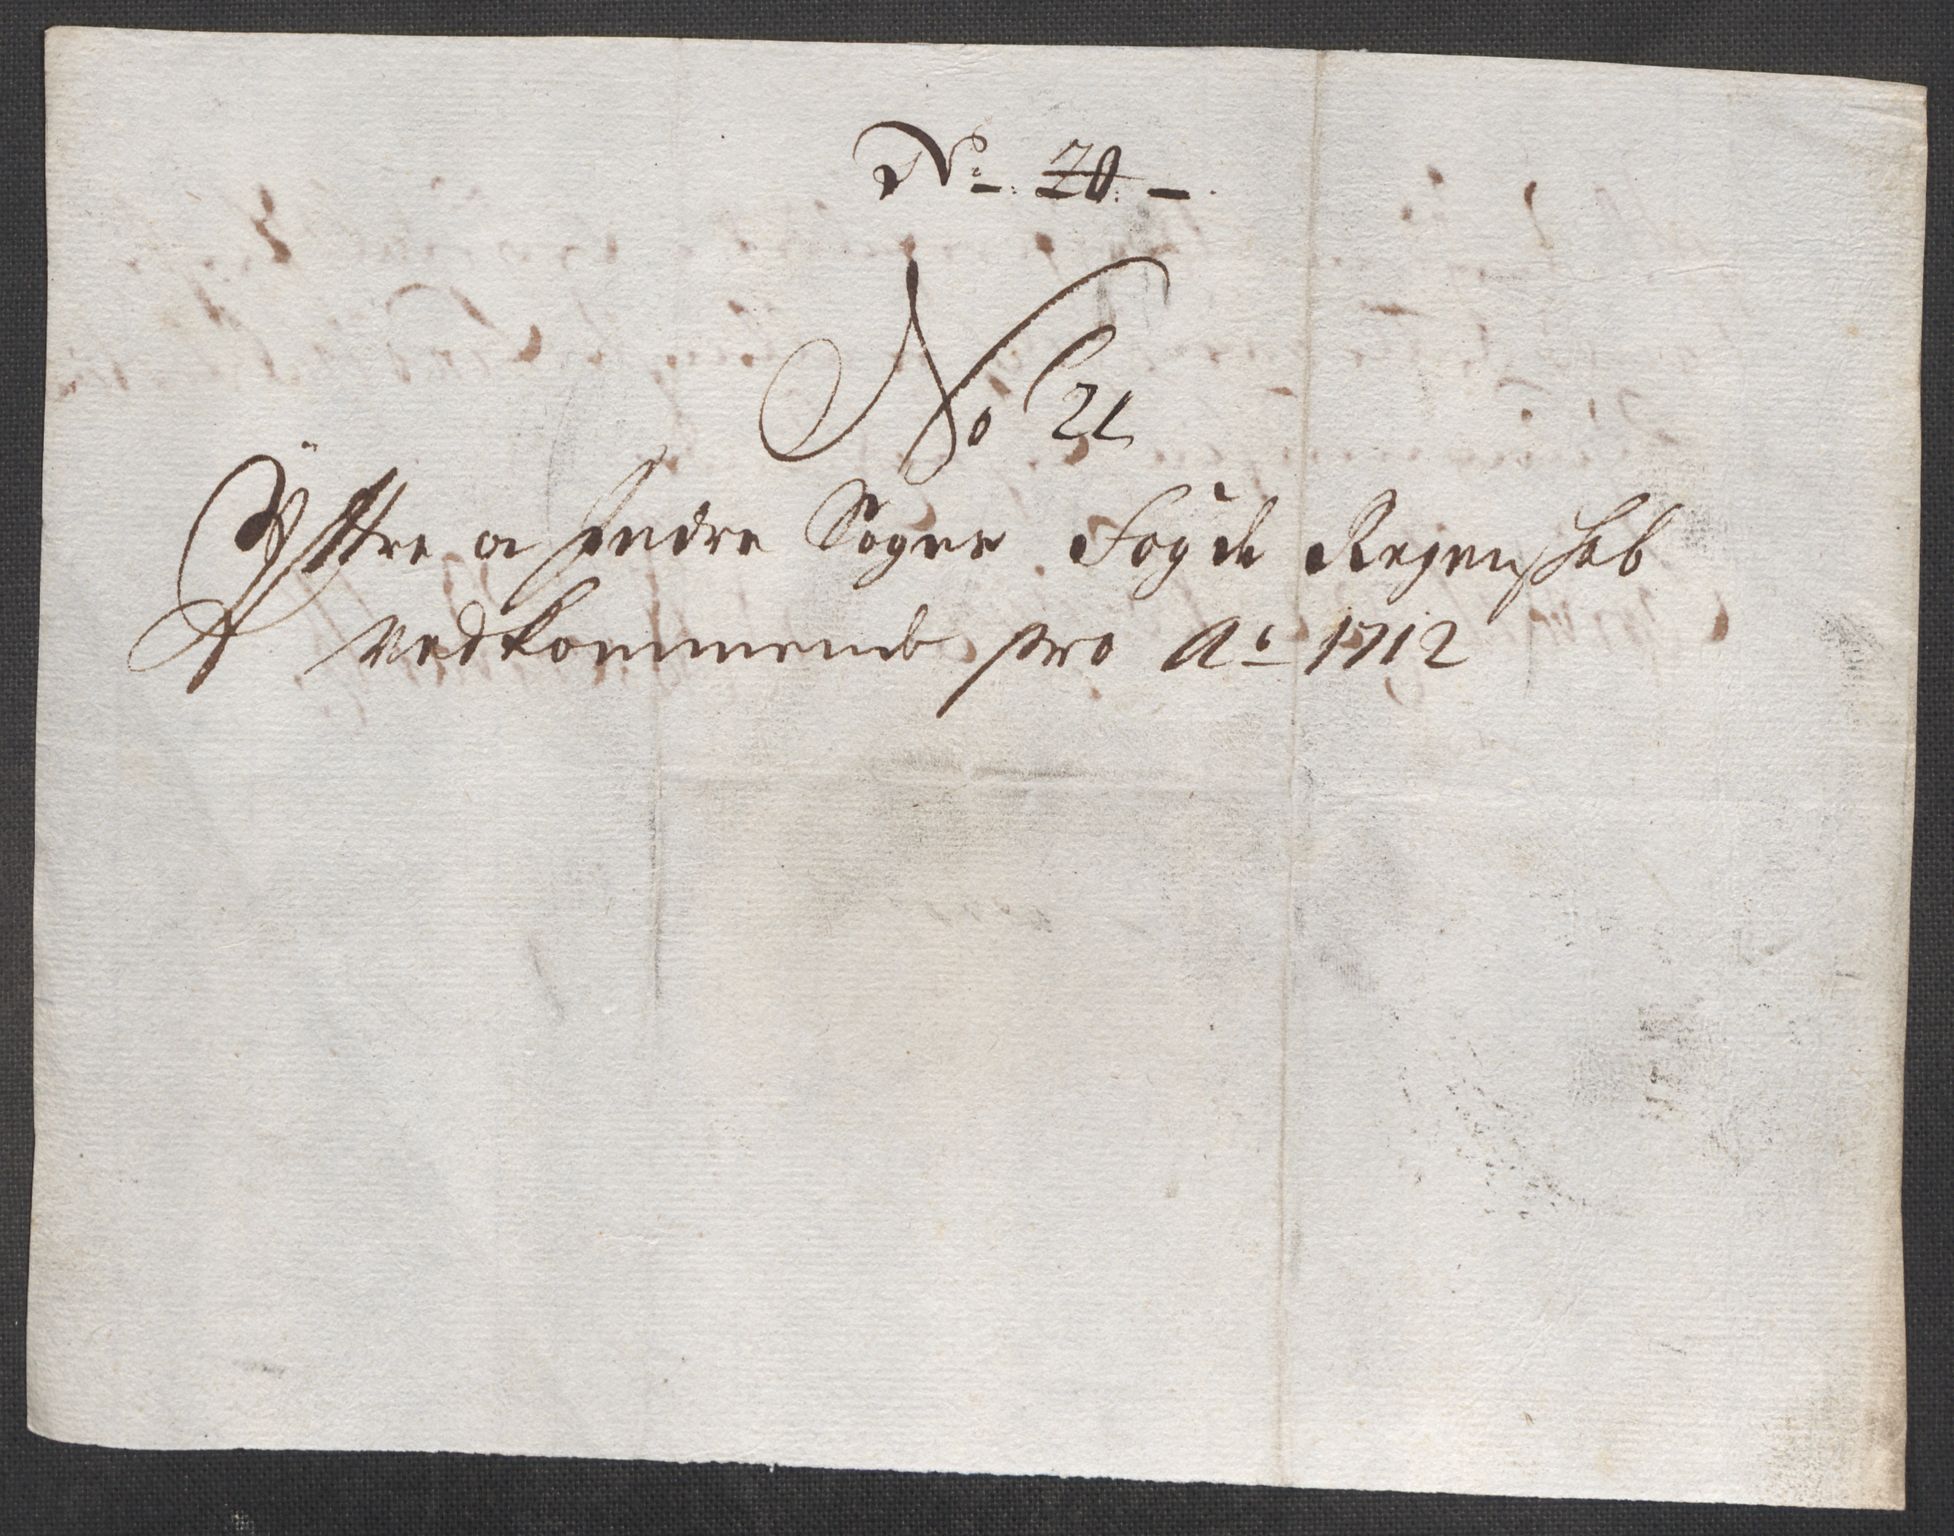 No. 20.
No 21
Ÿttre a Indre Sogns Fogde Regenskab
vedkommende pro Ao 1712